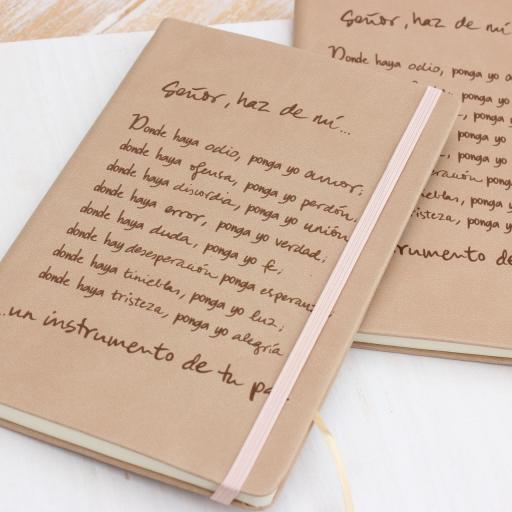 Señor, haz de mí...
Donde haya odio, ponga yo amor;
donde haya ofensa, ponga yo perdón;
donde haya discordia, ponga yo unión
donde haya error, ponga yo verdad;
donde haya duda, ponga yo fe;
donde hay desesperación ponga esperanza
donde haya tinieblas, ponga yo luz;
donde haya tristeza, ponga yo alegría
...un instrumento de tu
Señor, haz de mí
Donde haya odio, ponga yo
ponga yo
ponga yo
ponga yo
ponga yo
ponga
ponga y
tristeza, ponga y
rumento de